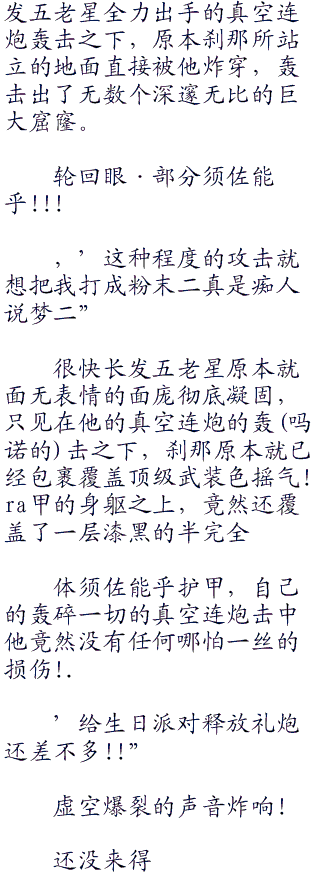 发五老星全力出手的真空连
炮轰击之下，原本刹那所站
立的地面直接被他炸穿，轰
击出了无数个深邃无比的巨
大窟窿。
轮回眼·部分须佐能
乎!!!
，’这种程度的攻击就
想把我打成粉末二真是痴人
说梦二”
很快长发五老星原本就
面无表情的面庞彻底凝固，
只见在他的真空连炮的轰(吗
诺的)击之下，刹那原本就已
经包裹覆盖顶级武装色摇气!
ra甲的身躯之上，竟然还覆
盖了一层漆黑的半完全
体须佐能乎护甲，自己
的轰碎一切的真空连炮击中
他竟然没有任何哪怕一丝的
损伤!.
’给生日派对释放礼炮
还差不多!!”
虚空爆裂的声音炸响!
还没来得